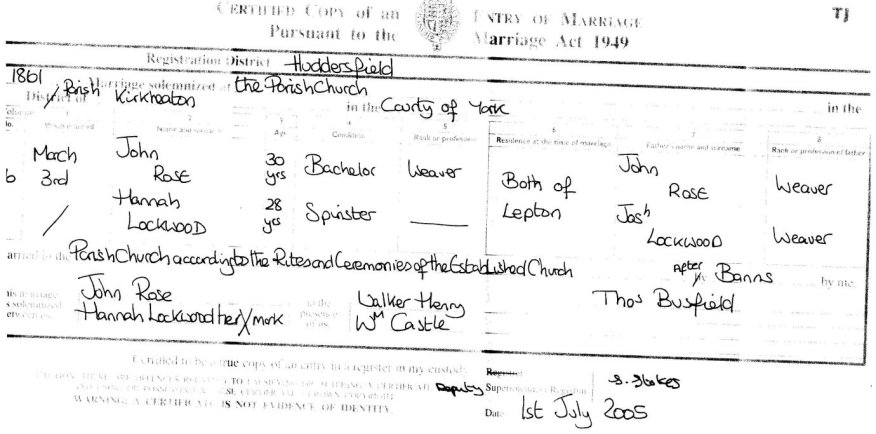 CERTIFIED COPY of an ENTRY OF MARRIAGE
TJ
Pursuant to the Marriage Act 1949
Registration District Huddersfield
1861 Marriage solemnized at the Parish Church
District of Parish Kirkheaton in the County of York in the
No. When married Name and surname Age Condition Rank or profession Residence at the time of marriage Father's name and surname Rank or profession of father
1 2 3 4 5 6 7 8
March John 30 Bachelor Weaver Both of John Weaver
3rd ROSE yrs Lepton ROSE
Hannah 28 Spinster Josh Weaver
LOCKWOOD yrs LOCKWOOD
the Parish Church according to the Rites and Ceremonies of the Established Church After Banns by me,
John Rose in the Walker Henry Thos Busfield
Hannah Lockwood her X mark presence of us, Wm Castle
Certified to be a true copy of an entry in a register in my custody.
Deputy Superintendent Registrar S. Stokes
WARNING: A CERTIFICATE IS NOT EVIDENCE OF IDENTITY.
Date 1st July 2005